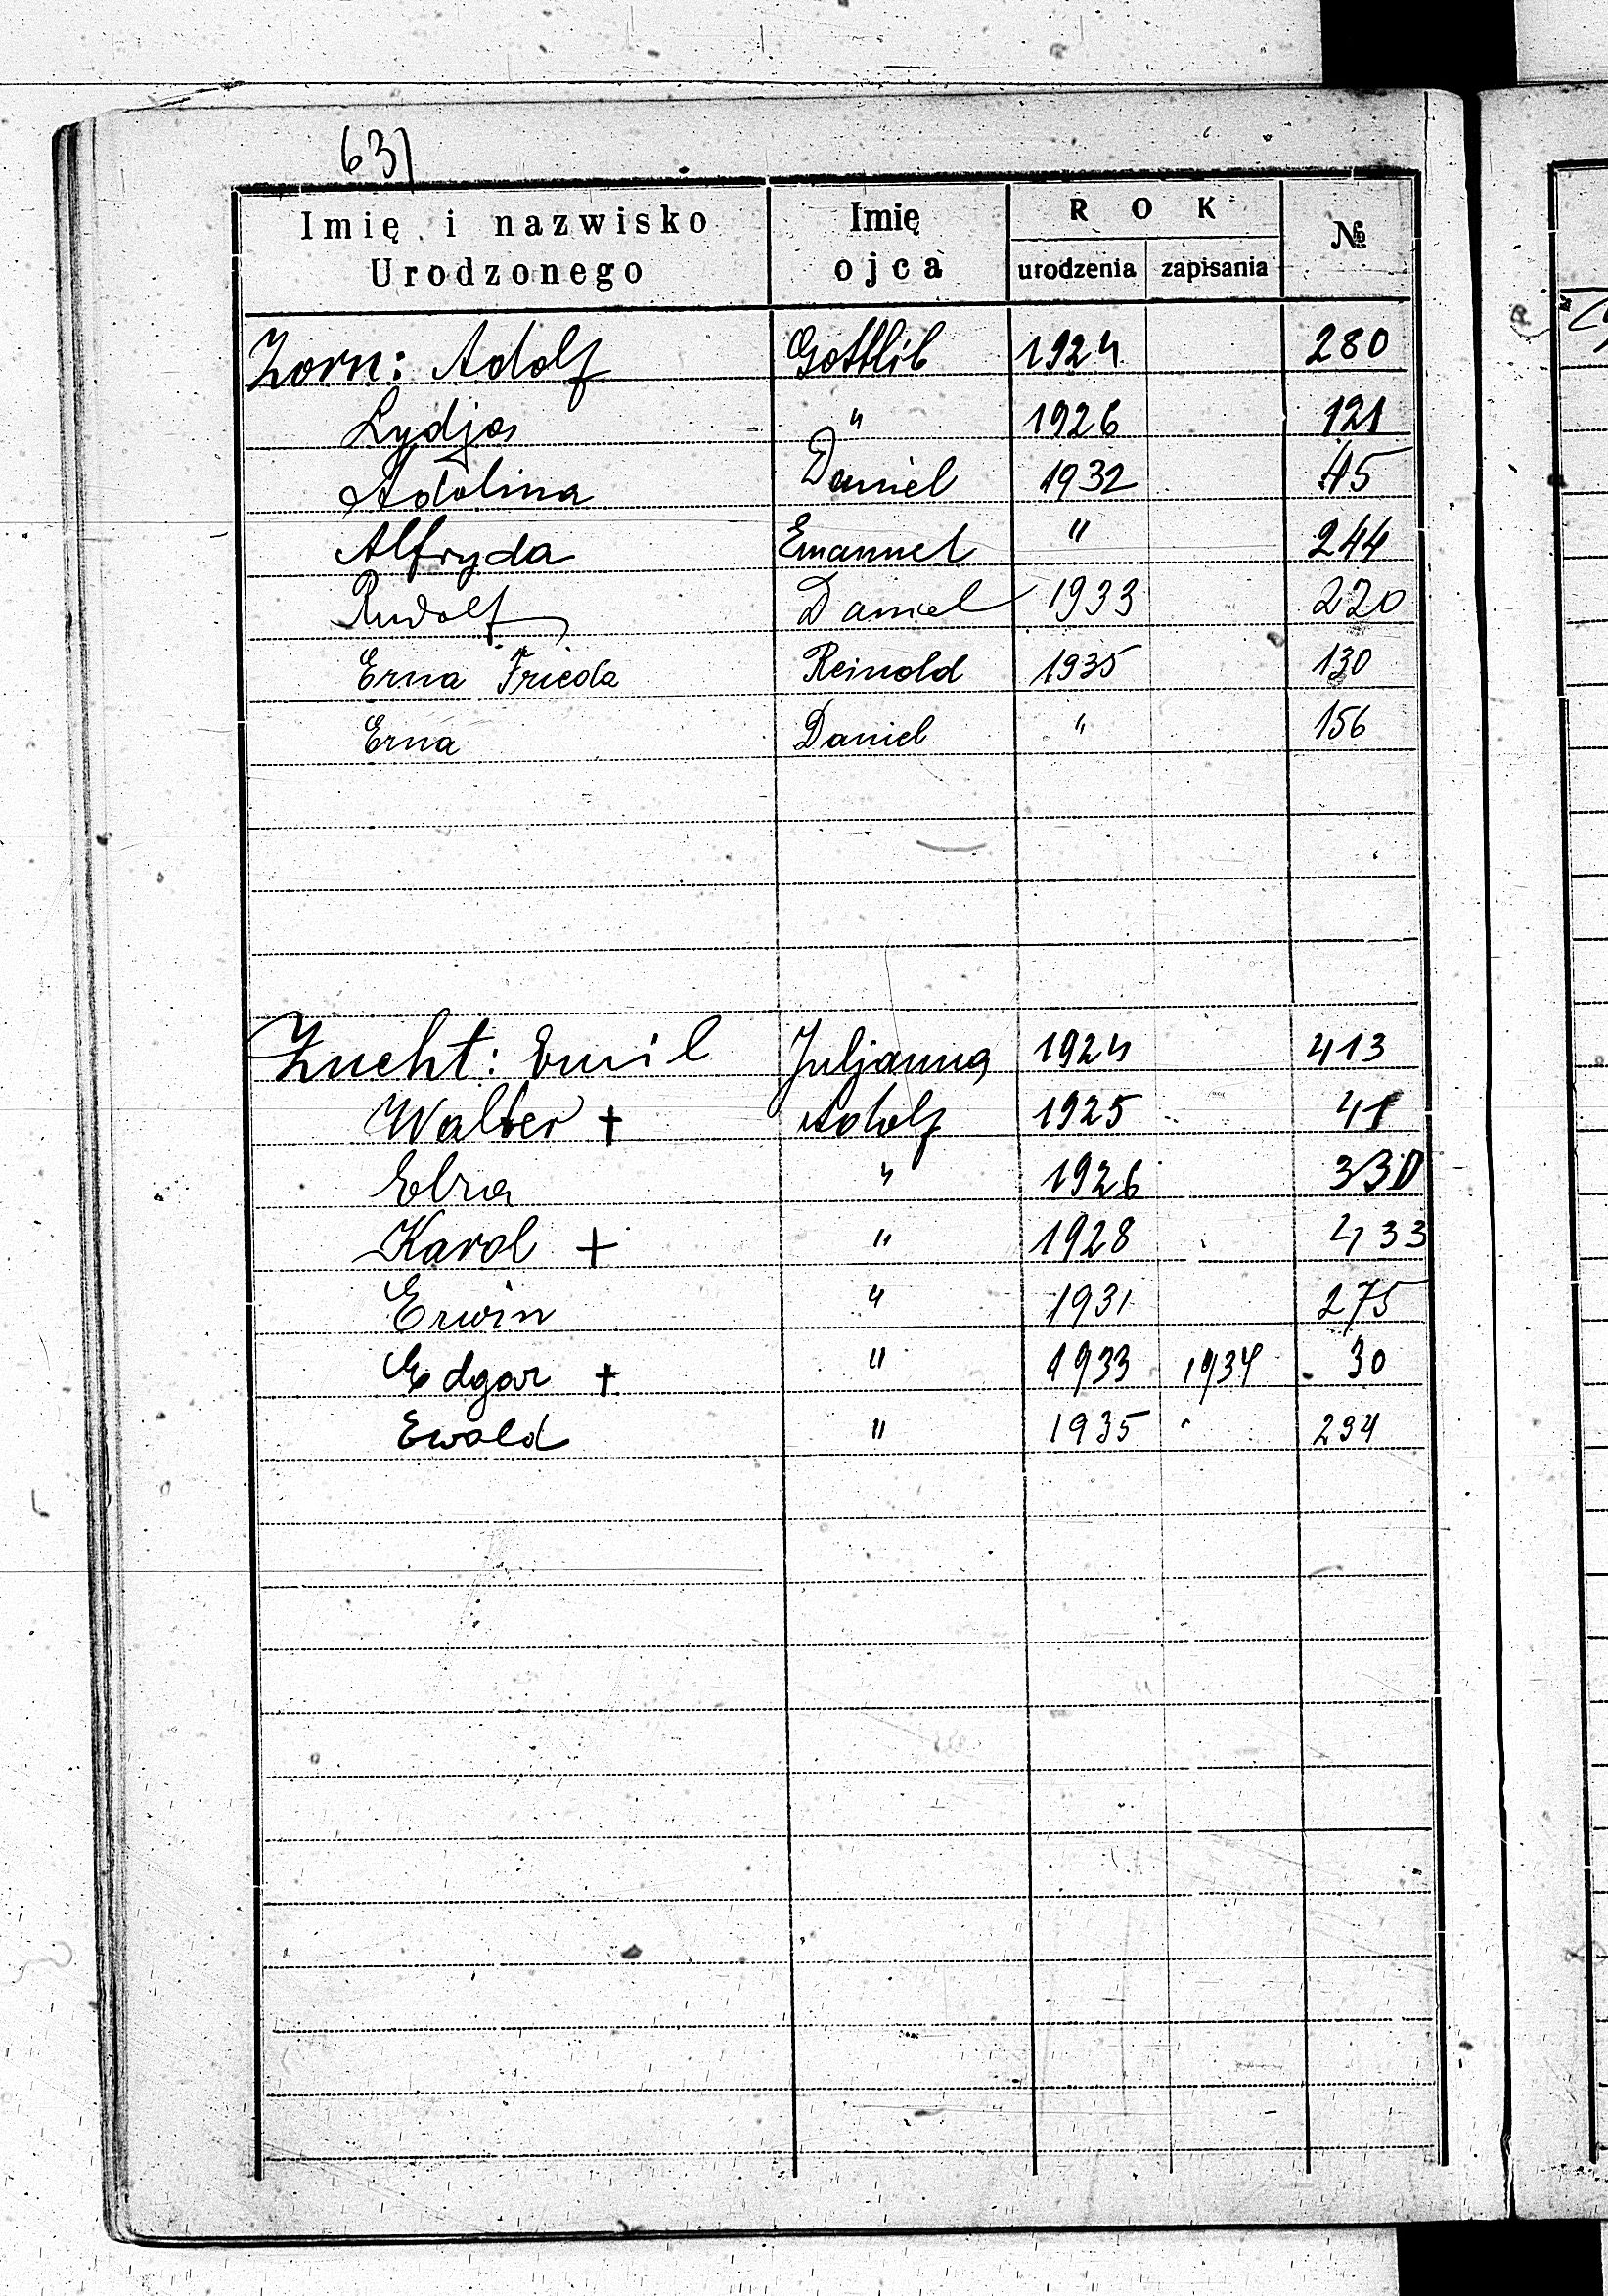 63)
Imię i nazwisko Urodzonego Imię ojca ROK urodzenia zapisania №
Zorn: Adolf Gottlib 1924 280
Lydja " 1926 121
Adolina Daniel 1932 45
Alfryda Emanuel " 244
Rudolf Daniel 1933 220
Erna Frieda Reinold 1935 130
Erna Daniel " 156
Zucht: Emil Juljanna 1924 413
Walter + Adolf 1925 41
" 1926 330
Karol + " 1928 433
Erwin " 1931 275
Edgar + " 1933 1934 30
Ewald " 1935 294